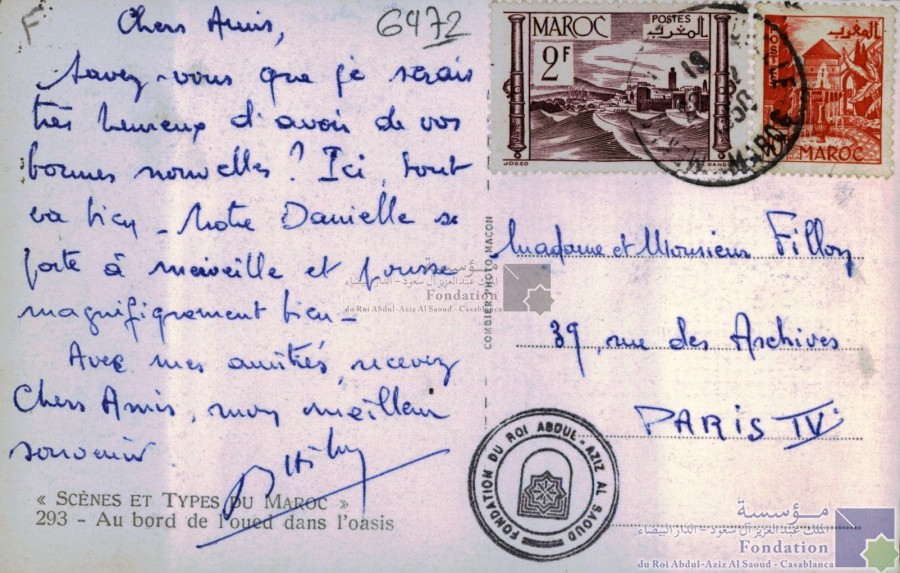 F
6472
Chers Amis,
Savez-vous que je serais
très heureux d'avoir de vos
bonnes nouvelles? Ici, tout
va bien - Notre Danielle se
porte à merveille et pousse
magnifiquement bien -
Avec mes amitiés, recevez
Chers Amis, mon meilleur
souvenir
« SCÈNES ET TYPES DU MAROC »
293 - Au bord de l'oued dans l'oasis
COMBIER PHOTO MACON
MAROC
POSTES
المغرب
2F
JOSSO
MAROC
المغرب
POSTES
MAROC
Madame et Monsieur Fillon
39, rue des Archives
PARIS IV
مؤسسة
الملك عبد العزيز آل سعود - الدار البيضاء
Fondation
du Roi Abdul-Aziz Al Saoud - Casablanca
FONDATION DU ROI ABDUL-AZIZ AL SAOUD
مؤسسة
الملك عبد العزيز آل سعود - الدار البيضاء
Fondation
du Roi Abdul-Aziz Al Saoud - Casablanca